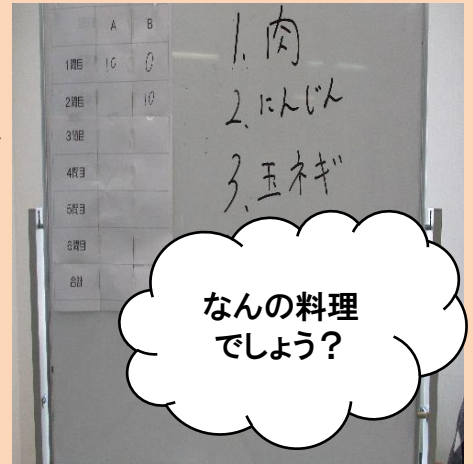 A B
1問目 10 0
2問目 10
3問目
4問目
5問目
6問目
合計
1. 肉
2. にんじん
3. 玉ネギ
なんの料理
でしょう？